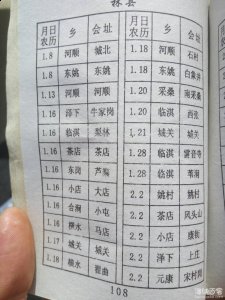 林县
月日 乡 会址 月日 乡 会址
农历 农历
1.8 河顺 城北 1.18 河顺 石村
1.8 东姚 东姚 1.18 东姚 白象井
1.13 河顺 河顺 1.20 采桑 南采桑
1.16 泽下 牛家岗 1.20 临淇 西张
1.16 临淇 梨林 1.21 城关 城关
1.16 茶店 茶店 1.28 临淇
1.16 东岗 芦寨 1.28 临淇
1.16 小店 大店 2.2 姚村 姚村
1.16 合涧 小屯 2.2 茶店
1.16 横水 马店 2.2 小店
1.17 城关 城关 2.2 泽下 上庄
1.18 横水 翟曲 2.2 元康 宋村
108